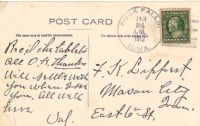 POST CARD
JAN
24
IOWA
Rec'd the tablets
all O.K. Thanks
Will settle with
you when I see
you. All well
here
Val.
F. K. Lippert
Mason City
Iowa
East 6 St.